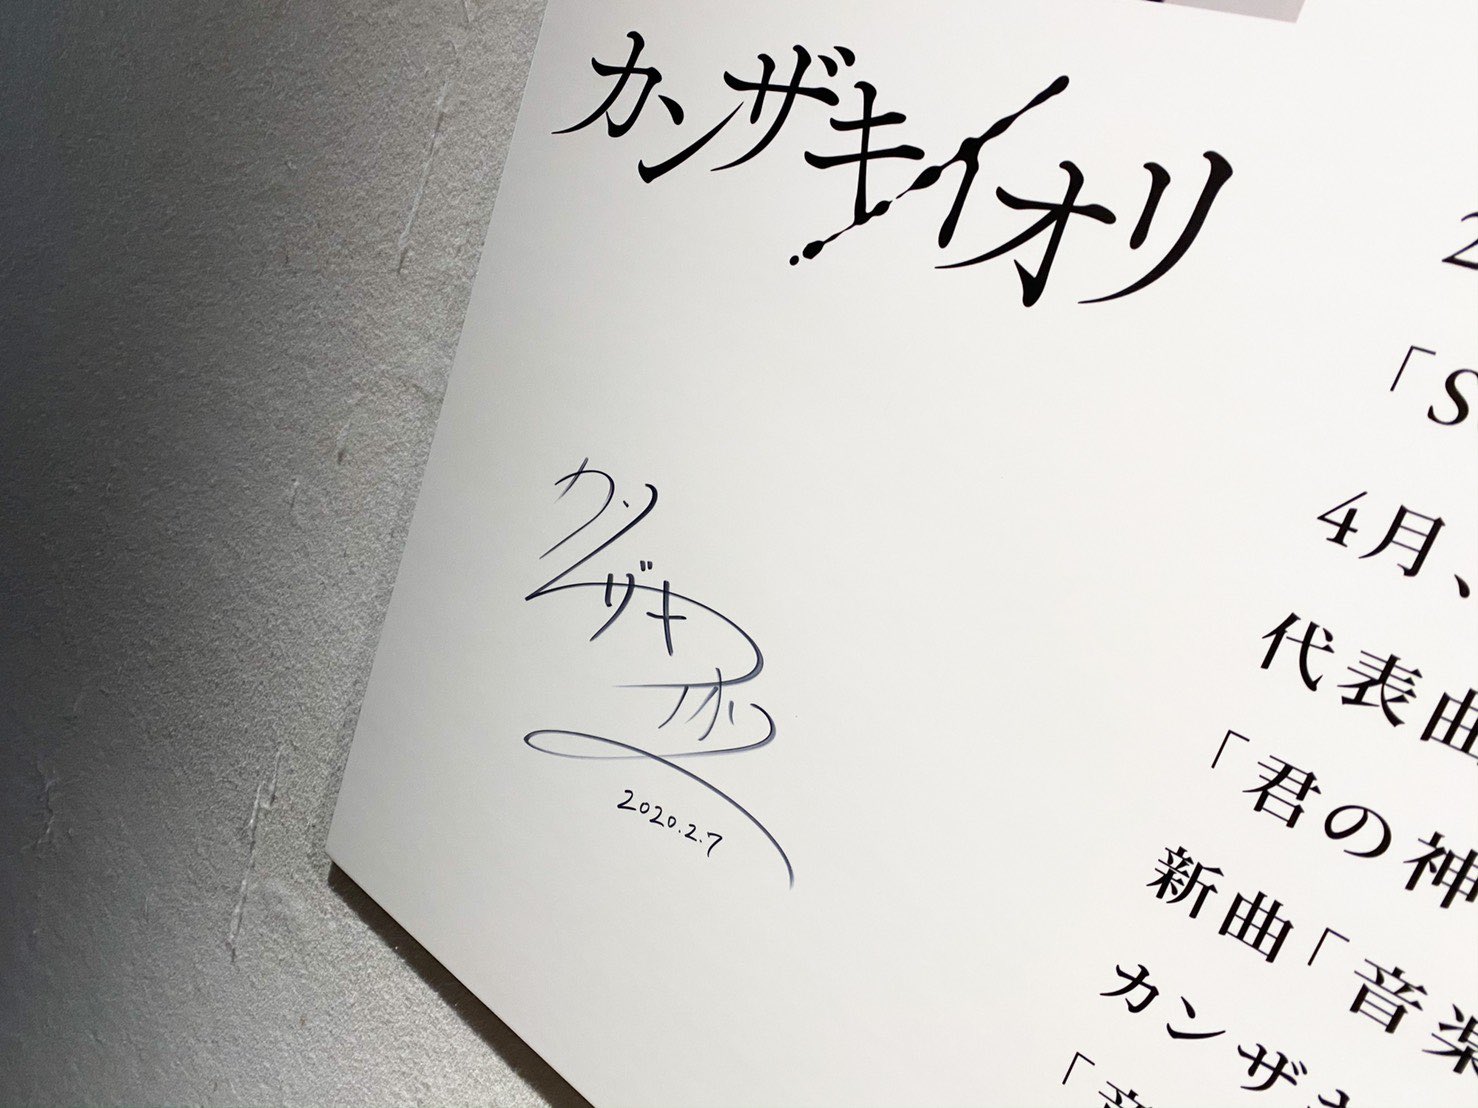 カンザキイオリ
カンザキイオリ
2020.2.7
2
「S
4月、
代表曲
「君の神
新曲「音楽
カンザキ
「音